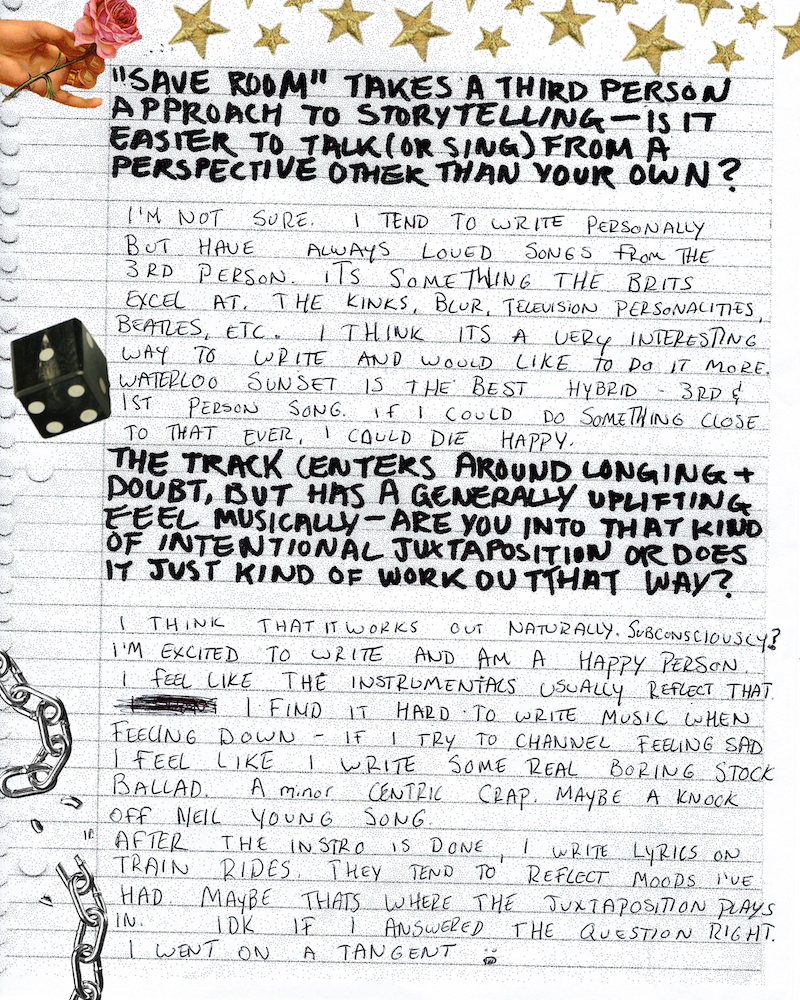 "SAVE ROOM" TAKES A THIRD PERSON
APPROACH TO STORYTELLING—IS IT
EASIER TO TALK (OR SING) FROM A
PERSPECTIVE OTHER THAN YOUR OWN?
I'M NOT SURE. I TEND TO WRITE PERSONALLY
BUT HAVE ALWAYS LOVED SONGS FROM THE
3RD PERSON. ITS SOMETHING THE BRITS
EXCEL AT. THE KINKS, BLUR, TELEVISION PERSONALITIES,
BEATLES, ETC. I THINK ITS A VERY INTERESTING
WAY TO WRITE AND WOULD LIKE TO DO IT MORE.
WATERLOO SUNSET IS THE BEST HYBRID - 3RD &
1ST PERSON SONG. IF I COULD DO SOMETHING CLOSE
TO THAT EVER, I COULD DIE HAPPY.
THE TRACK CENTERS AROUND LONGING +
DOUBT, BUT HAS A GENERALLY UPLIFTING
FEEL MUSICALLY—ARE YOU INTO THAT KIND
OF INTENTIONAL JUXTAPOSITION OR DOES
IT JUST KIND OF WORK OUT THAT WAY?
I THINK THAT IT WORKS OUT NATURALLY. SUBCONSCIOUSLY?
I'M EXCITED TO WRITE AND AM A HAPPY PERSON.
I FEEL LIKE THE INSTRUMENTALS USUALLY REFLECT THAT.
I FIND IT HARD TO WRITE MUSIC WHEN
FEELING DOWN - IF I TRY TO CHANNEL FEELING SAD
I FEEL LIKE I WRITE SOME REAL BORING STOCK
BALLAD. A minor CENTRIC CRAP. MAYBE A KNOCK
OFF NEIL YOUNG SONG.
AFTER THE INSTRO IS DONE, I WRITE LYRICS ON
TRAIN RIDES. THEY TEND TO REFLECT MOODS I'VE
HAD. MAYBE THATS WHERE THE JUXTAPOSITION PLAYS
IN. IDK IF I ANSWERED THE QUESTION RIGHT.
I WENT ON A TANGENT